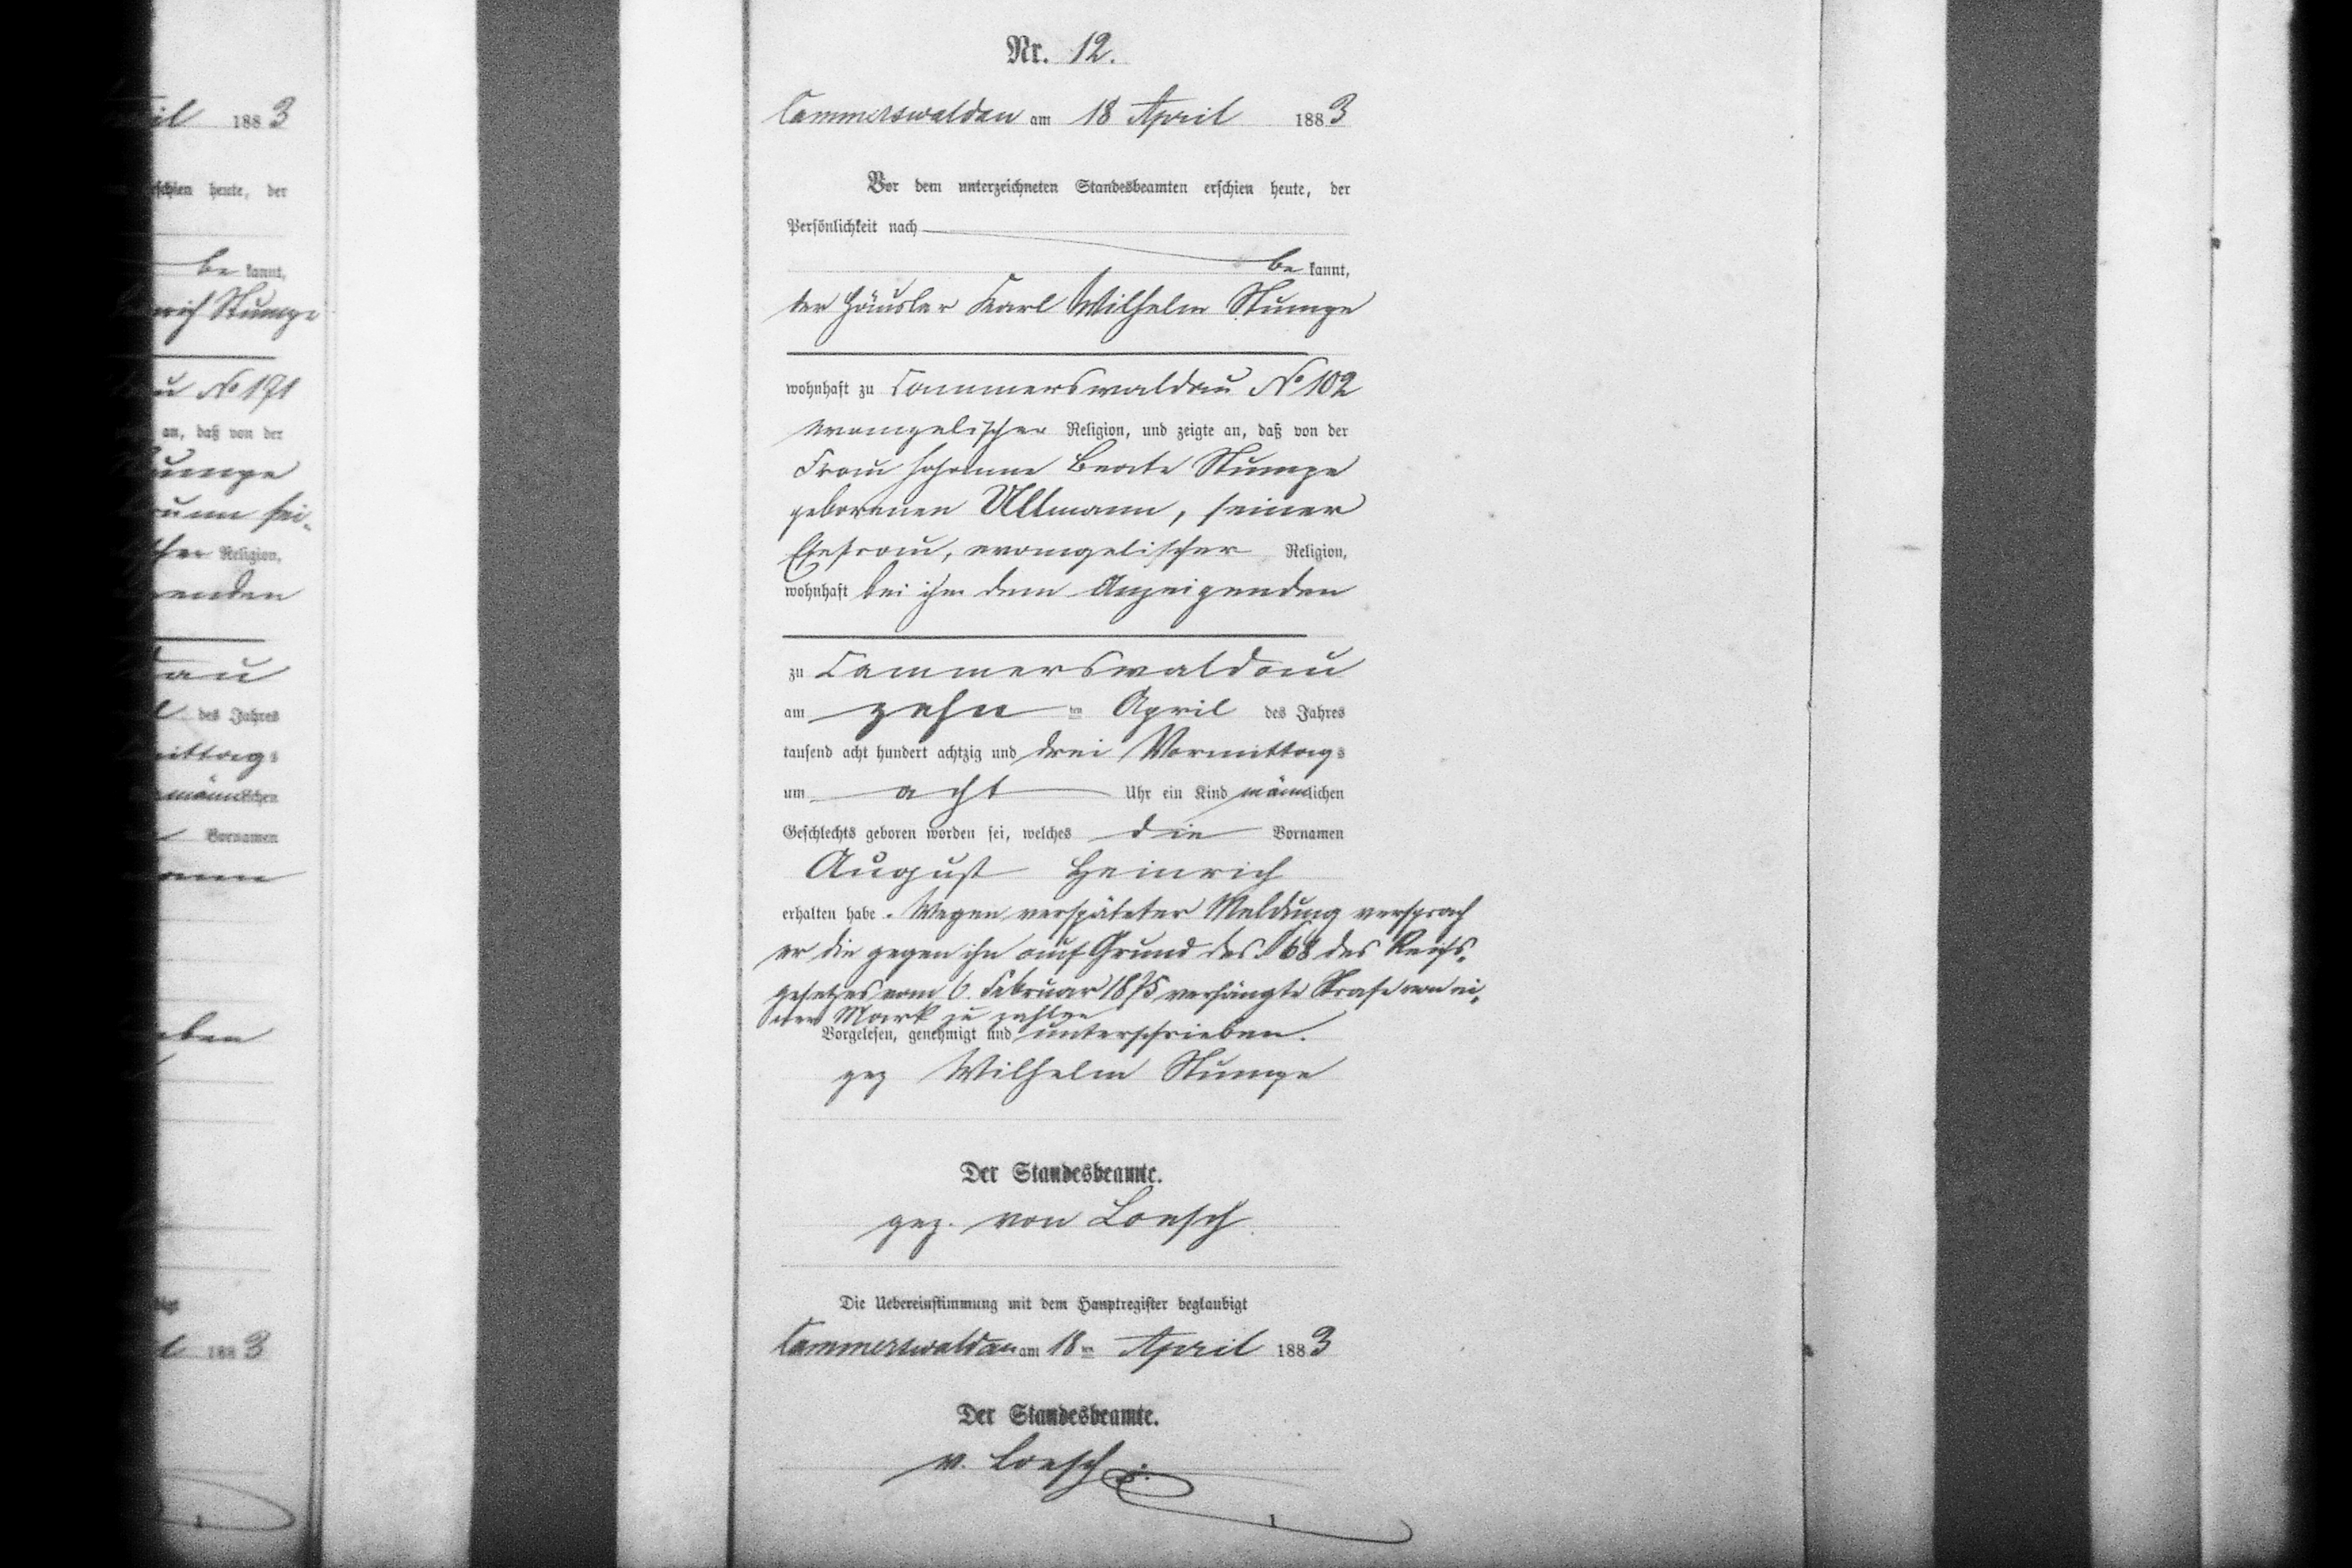 il 1883
erschien heute, der
be kannt,
rich Stumpe
au No 171
an, daß von der
Stumpe
sei-
scher Religion,
genden
dau
des Jahres
mittags
männlichen
Vornamen
ben
1883
Nr. 12.
Cammerswaldau am 18 April 1883
Vor dem unterzeichneten Standesbeamten erschien heute, der
Persönlichkeit nach
be kannt,
der Häusler Karl Wilhelm Stumpe
wohnhaft zu Cammerswaldau No 102
evangelischer Religion, und zeigte an, daß von der
Frau Johanne Beate Stumpe
geborenen Ullmann, seiner
Ehefrau, evangelischer Religion,
wohnhaft bei ihm dem Anzeigenden
zu Cammerswaldau
am zehn ten April des Jahres
tausend acht hundert achtzig und drei Vormittags
um acht Uhr ein Kind männlichen
Geschlechts geboren worden sei, welches die Vornamen
August Heinrich
erhalten habe. Wegen verspäteter Meldung versprach
er die gegen ihn auf Grund des § 68 des Reichs-
gesetzes vom 6. Februar 1875 verhängte Strafe von ei-
ner Mark zu zahlen
Vorgelesen, genehmigt und unterschrieben.
gez Wilhelm Stumpe
Der Standesbeamte.
gez. von Loesch.
Die Uebereinstimmung mit dem Hauptregister beglaubigt
Cammerswaldau am 18ten April 1883
Der Standesbeamte.
v. Loesch